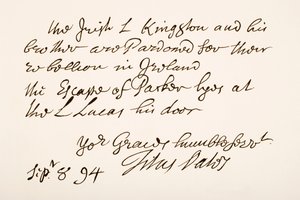 the Irish L Kingston and his
brother are Pardoned for their
rebellion in Ireland
the Escape of Parker lyes at
the L Lucas his door
Yor Graces humble servt
Sepr 8 94 Titus Oates